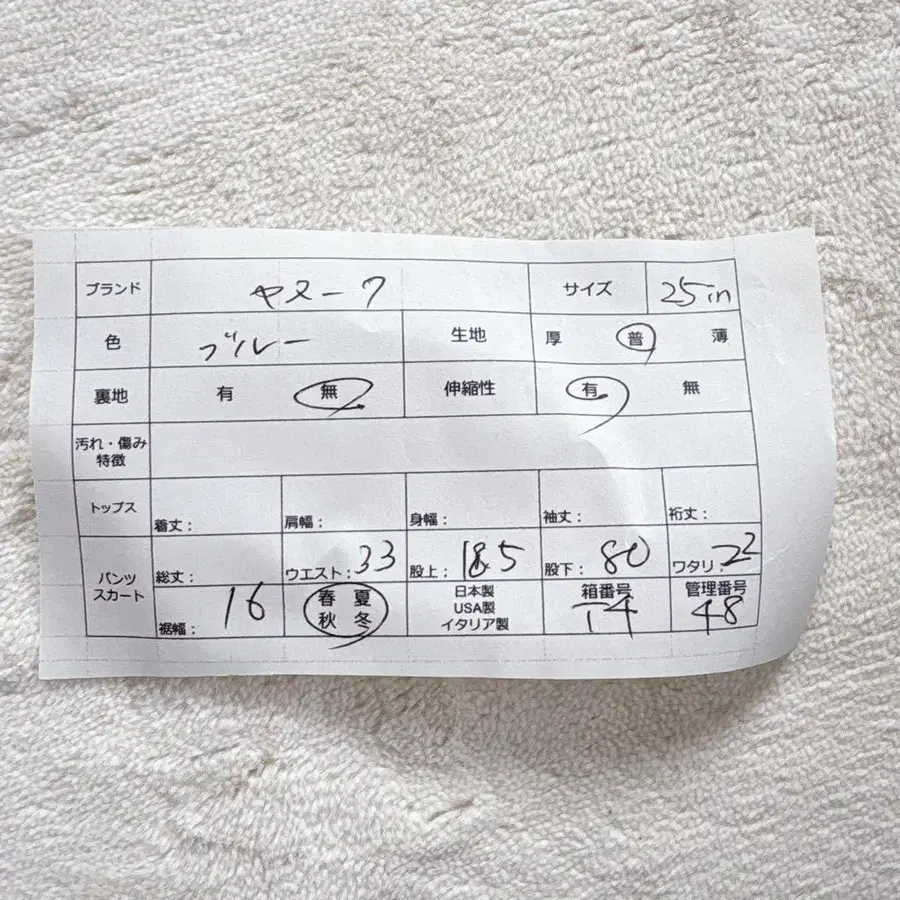 ブランド ヤヌーク サイズ 25in
色 ブルー 生地 厚 普 薄
裏地 有 無 伸縮性 有 無
汚れ・傷み
特徴
トップス 着丈： 肩幅： 身幅： 袖丈： 裄丈：
パンツ
スカート
総丈： ウエスト：33 股上：18.5 股下：80 ワタリ：22
裾幅：16
春 夏
秋 冬
日本製
USA製
イタリア製
箱番号
T4
管理番号
48